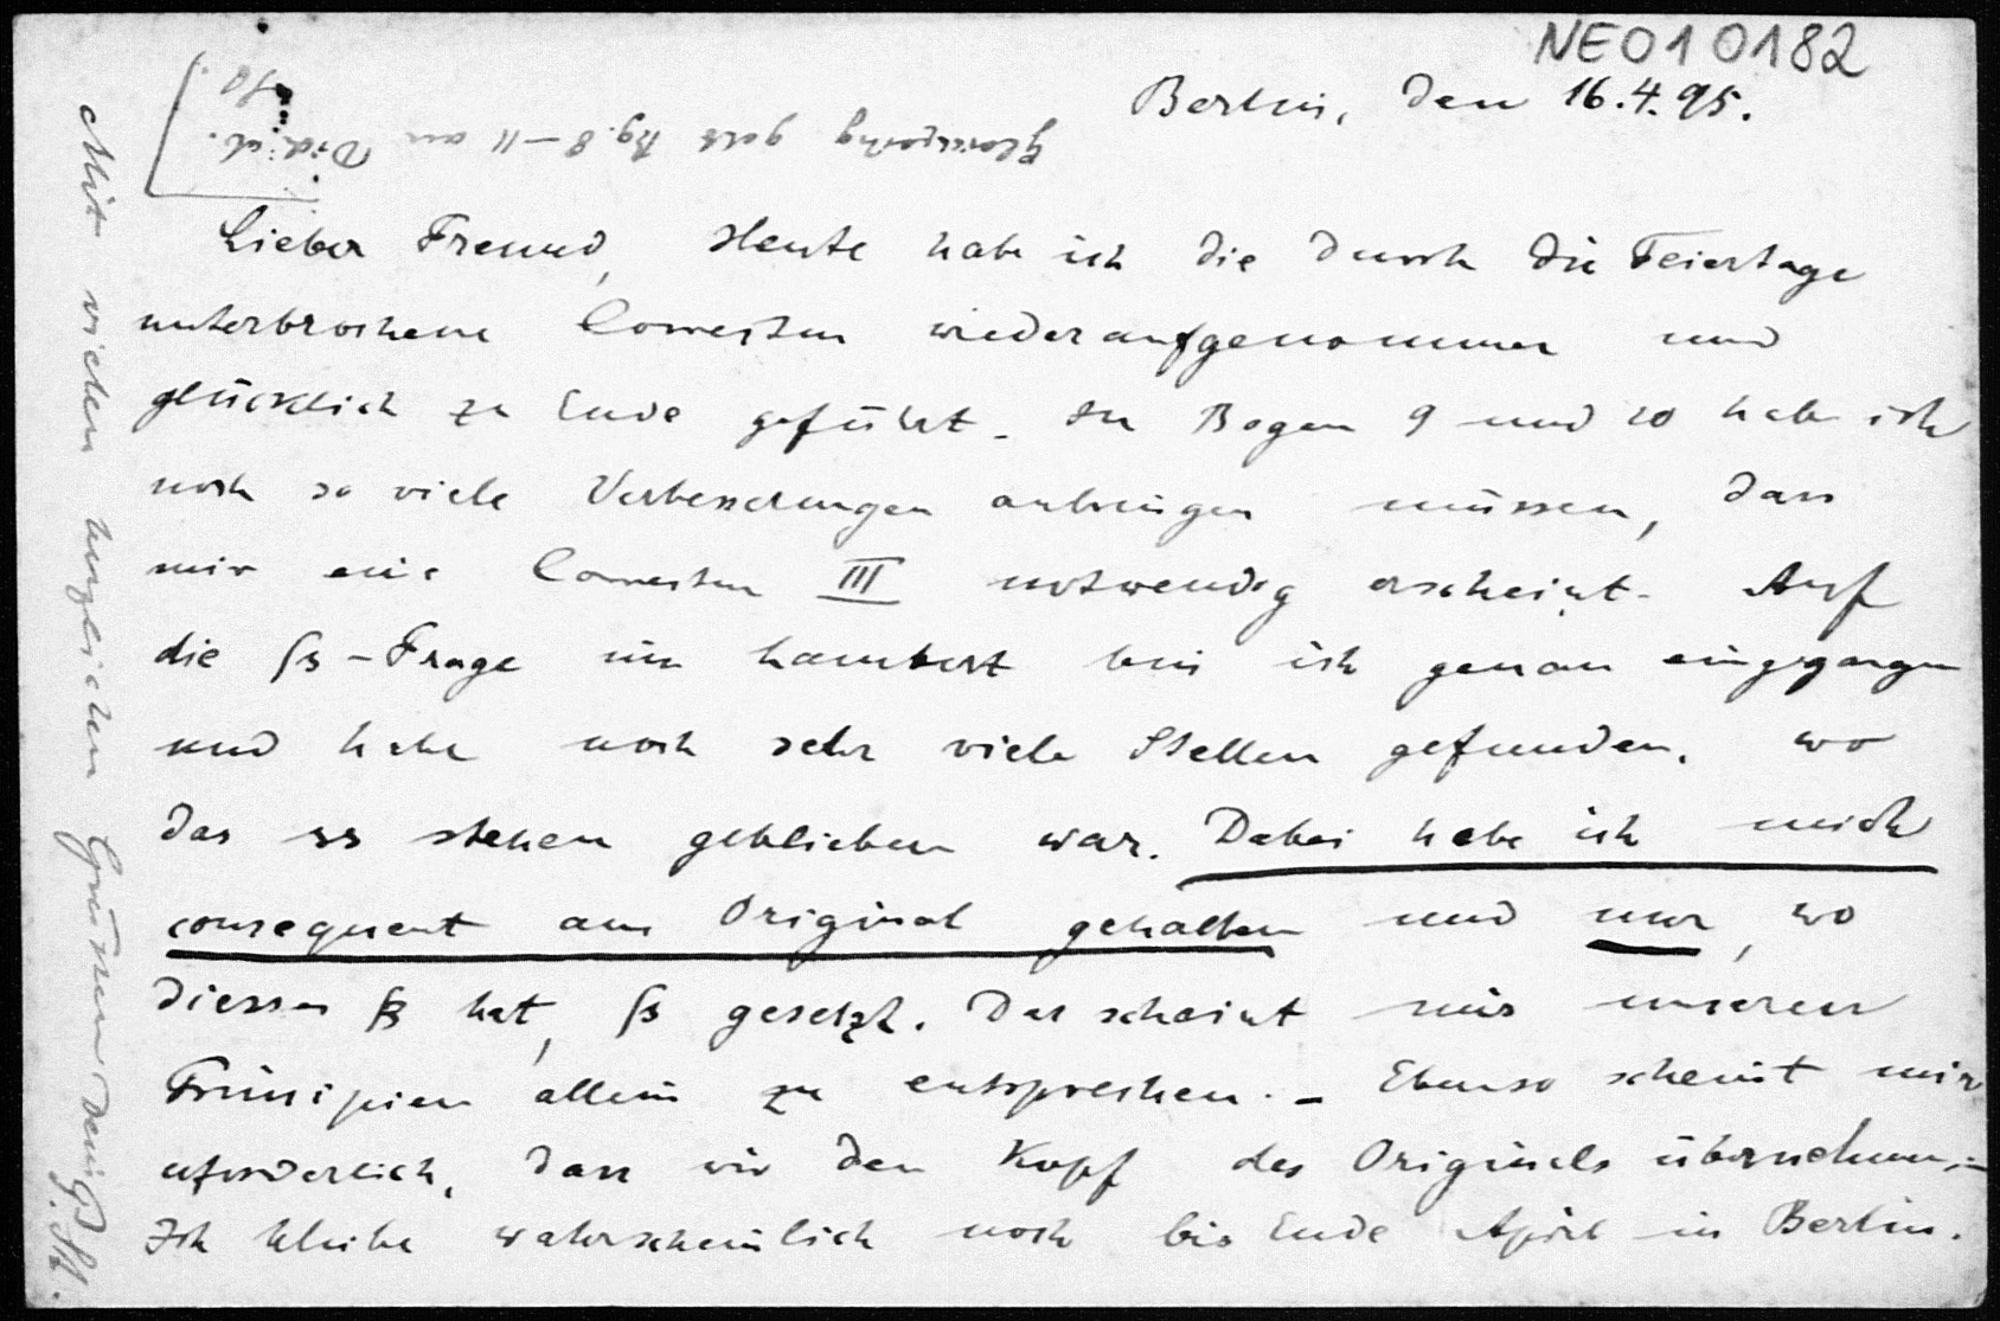 NE010182
Berlin, den 16.4.95.
Gleichzeitig geht Bg. 8–11 an Dich ab.
Lieber Freund, Heute habe ich die durch die Feiertage
unterbrochene Correctur wiederaufgenommen und
glücklich zu Ende geführt. In Bogen 9 und 10 habe ich
noch so viele Verbesserungen anbringen müssen, dass
mir eine Correctur III notwendig erscheint. Auf
die ſs-Frage im Lambert bin ich genau eingegangen
und habe noch sehr viele Stellen gefunden, wo
das ss stehen geblieben war. Dabei habe ich mich
consequent am Original gehalten und nur, wo
dieses ß hat, ſs gesetzt. Das scheint mir unseren
Principien allein zu entsprechen. – Ebenso scheint mir
erforderlich, dass wir den Kopf des Originals übernehmen.
Ich bleibe wahrscheinlich noch bis Ende April in Berlin.
Mit vielen herzlichen Grüssen Dein P. St.